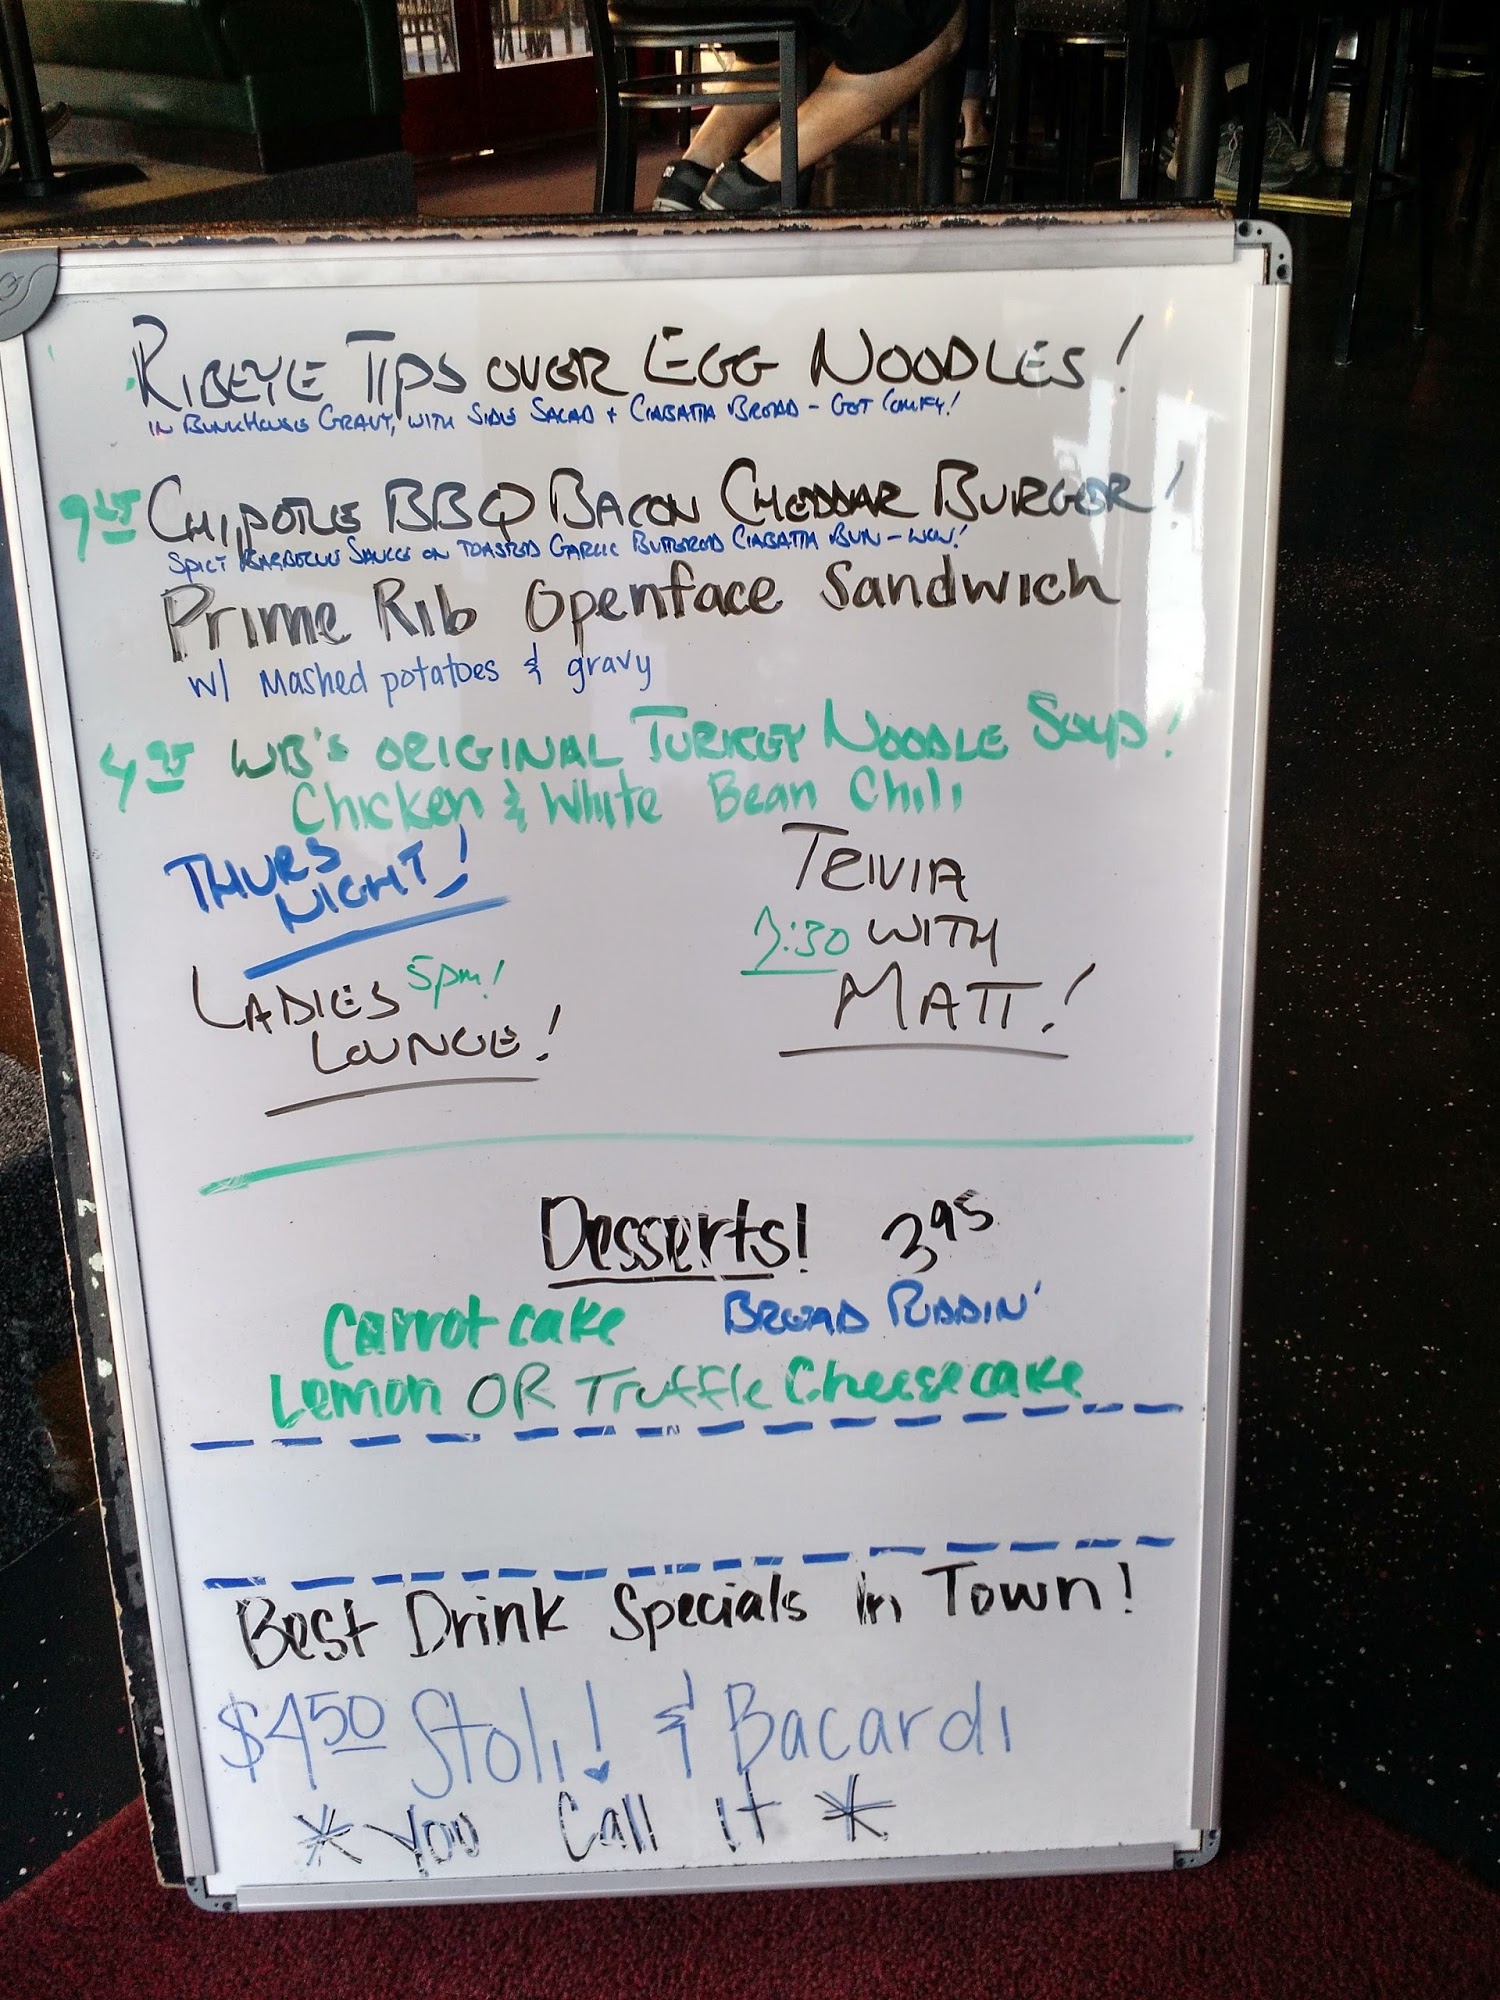 RIBEYE TIPS OVER EGG NOODLES!
IN BUNKHOUSE GRAVY, WITH SIDE SALAD + CIABATTA BREAD - GET COMFY!
9.95 CHIPOTLE BBQ BACON CHEDDAR BURGER!
SPICY BARBECUE SAUCE ON TOASTED GARLIC BUTTERED CIABATTA BUN - WOW!
Prime Rib Openface Sandwich
w/ Mashed potatoes & gravy
4.95 WB'S ORIGINAL TURKEY NOODLE SOUP!
Chicken & White Bean Chili
THURS NIGHT!
LADIES 5pm!
LOUNGE!
TRIVIA
7:30 WITH
MATT!
Desserts! 3.95
Carrot cake BREAD PUDDIN'
Lemon OR Truffle Cheesecake
Best Drink Specials in Town!
$4.50 Stoli! & Bacardi
* You Call it *